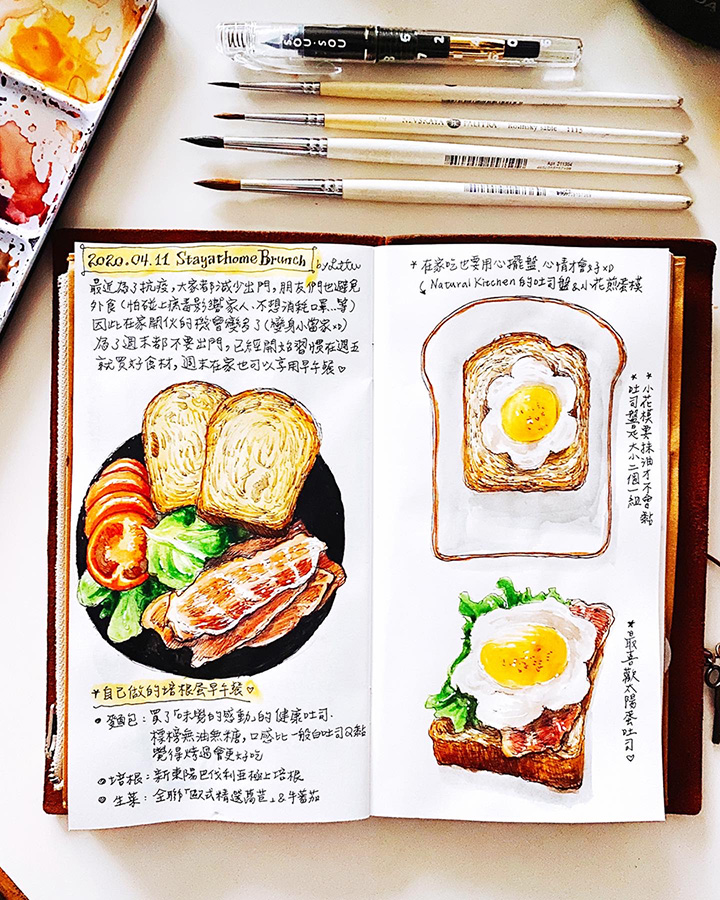 SOU・SOU
NEVSKAYA PALITRA
2020.04.11 Stay at home Brunch
最近為了抗疫,大家都減少出門,朋友們也避免
外食(怕碰上病毒影響家人、不想消耗口罩...等)
因此在家開伙的機會變多了(變身小當家xD)
為了週末都不要出門,已經開始習慣在週五
就買好食材,週末在家也可以享用早午餐♡
*自己做的培根蛋早午餐♡
麵包:買了「味覺的感動」的健康吐司.
標榜無油無糖,口感比一般白吐司Q黏
覺得烤過會更好吃
培根:新東陽巴伐利亞極上培根
生菜:全聯「歐式精選萵苣」&牛蕃茄
*在家吃也要用心擺盤、心情才會好xD
Natural Kitchen的吐司盤&小花煎蛋模
*小花模要抹油才不會黏
*吐司盤是大小二個一組
*最喜歡太陽蛋吐司♡